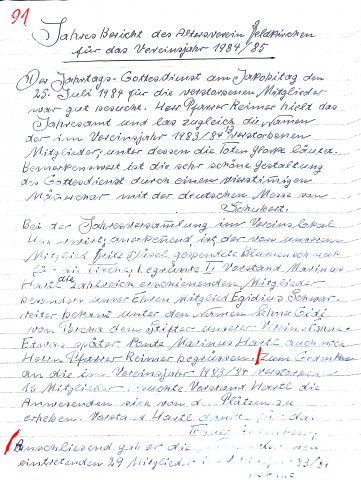 91
Jahres Bericht des Altersverein Feldkirchen
für das Vereinsjahr 1984/85
Der Jahrtags-Gottesdienst am Jakobitag den
25. Juli 1984 für die verstorbenen Mitglieder
war gut besucht. Herr Pfarrer Reimer hielt das
Jahresamt und las zugleich die Namen
der im Vereinsjahr 1983/84 13 verstorbenen
Mitglieder, unter dessen die Toten Glocke läutet.
Bemerkenswert ist die sehr schöne Gestaltung
des Gottesdienst durch einen vierstimigen
Männerchor mit der deutschen Messe von
Schubert.
Bei der Jahresversamlung im Vereinslokal
ist der von unserem
Mitglied Fritz gespendete Blumenschmuck
begrüsste I. Vorstand Marinus
Hartl die zahlreich erschienenden Mitglieder
besonders unser Ehren Mitglied Egidius
bekannt unter den Namen
von den Stifter unserer Vereins Fahne.
Etwas später konte Marinus Hartl auch noch
Herrn Pfarrer Reimer begruessen. Zum Gedenken
an die im Vereinsjahr 1983/84 verstorbenen
13 Mitglieder suchte Vorstand Hartl die
Anwesenden sich von den Plätzen zu
erheben. Vorstand Hartl dankte für das
Anschliessend gab er die der neu
eintretenden 29 Mitglieder 83/84